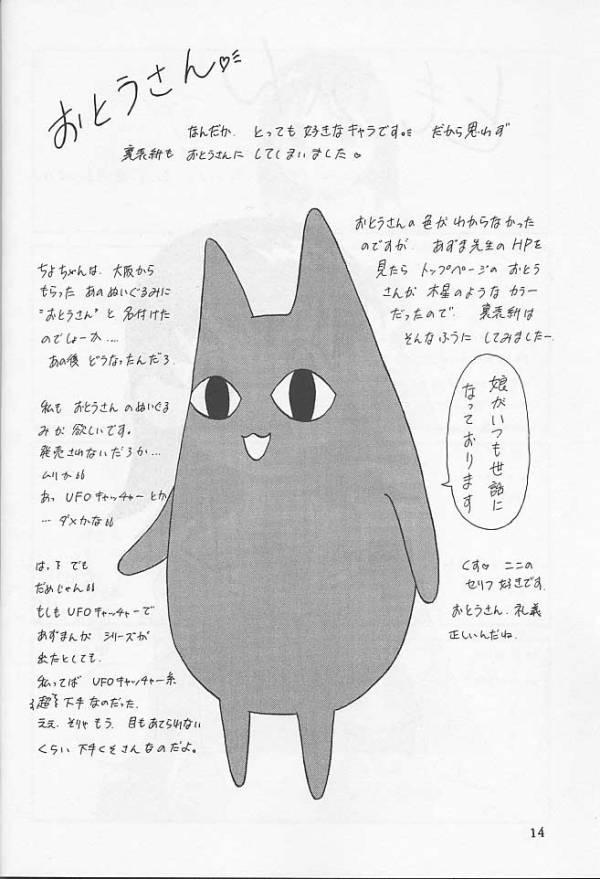 おとうさん♡
なんだか、とっても 好きなキャラです。 だから思わず
裏表紙も おとうさんに してしまいました♡
おとうさんの 色が わからなかった
のですが あずま先生の HPを
見たら トップページの おとう
さんが 木星のような カラー
だったので、 裏表紙は
そんなふうに してみましたー
ちよちゃんは、大阪から
もらった あのぬいぐるみに
"おとうさん" と 名付けた
のでしょーか....
あの後 どうなったんだろ
娘がいつも世話に
なっております
私も おとうさん のぬいぐる
みが 欲しいです。
発売されないだろか…
ムリか
あっ UFOキャッチャー とか
… ダメかな
は、 でも
だめじゃん
もしも UFOキャッチャーで
あずまんが シリーズが
出たとしても、
私ってば UFOキャッチャー系
超 下手 なのだった。
ええ、そりゃ もう、 目もあてられない
くらい 下手くそさん なのだよ。
くす♡ ここの
セリフ 好きです。
おとうさん、礼義
正しいんだね。
14